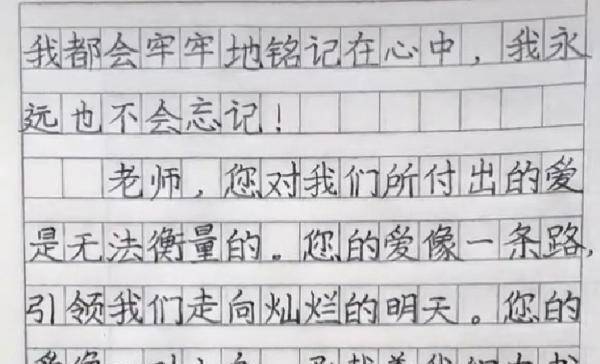 我都会牢牢地铭记在心中，我永
远也不会忘记！
老师，您对我们所付出的爱
是无法衡量的。您的爱像一条路，
引领我们走向灿烂的明天。您的